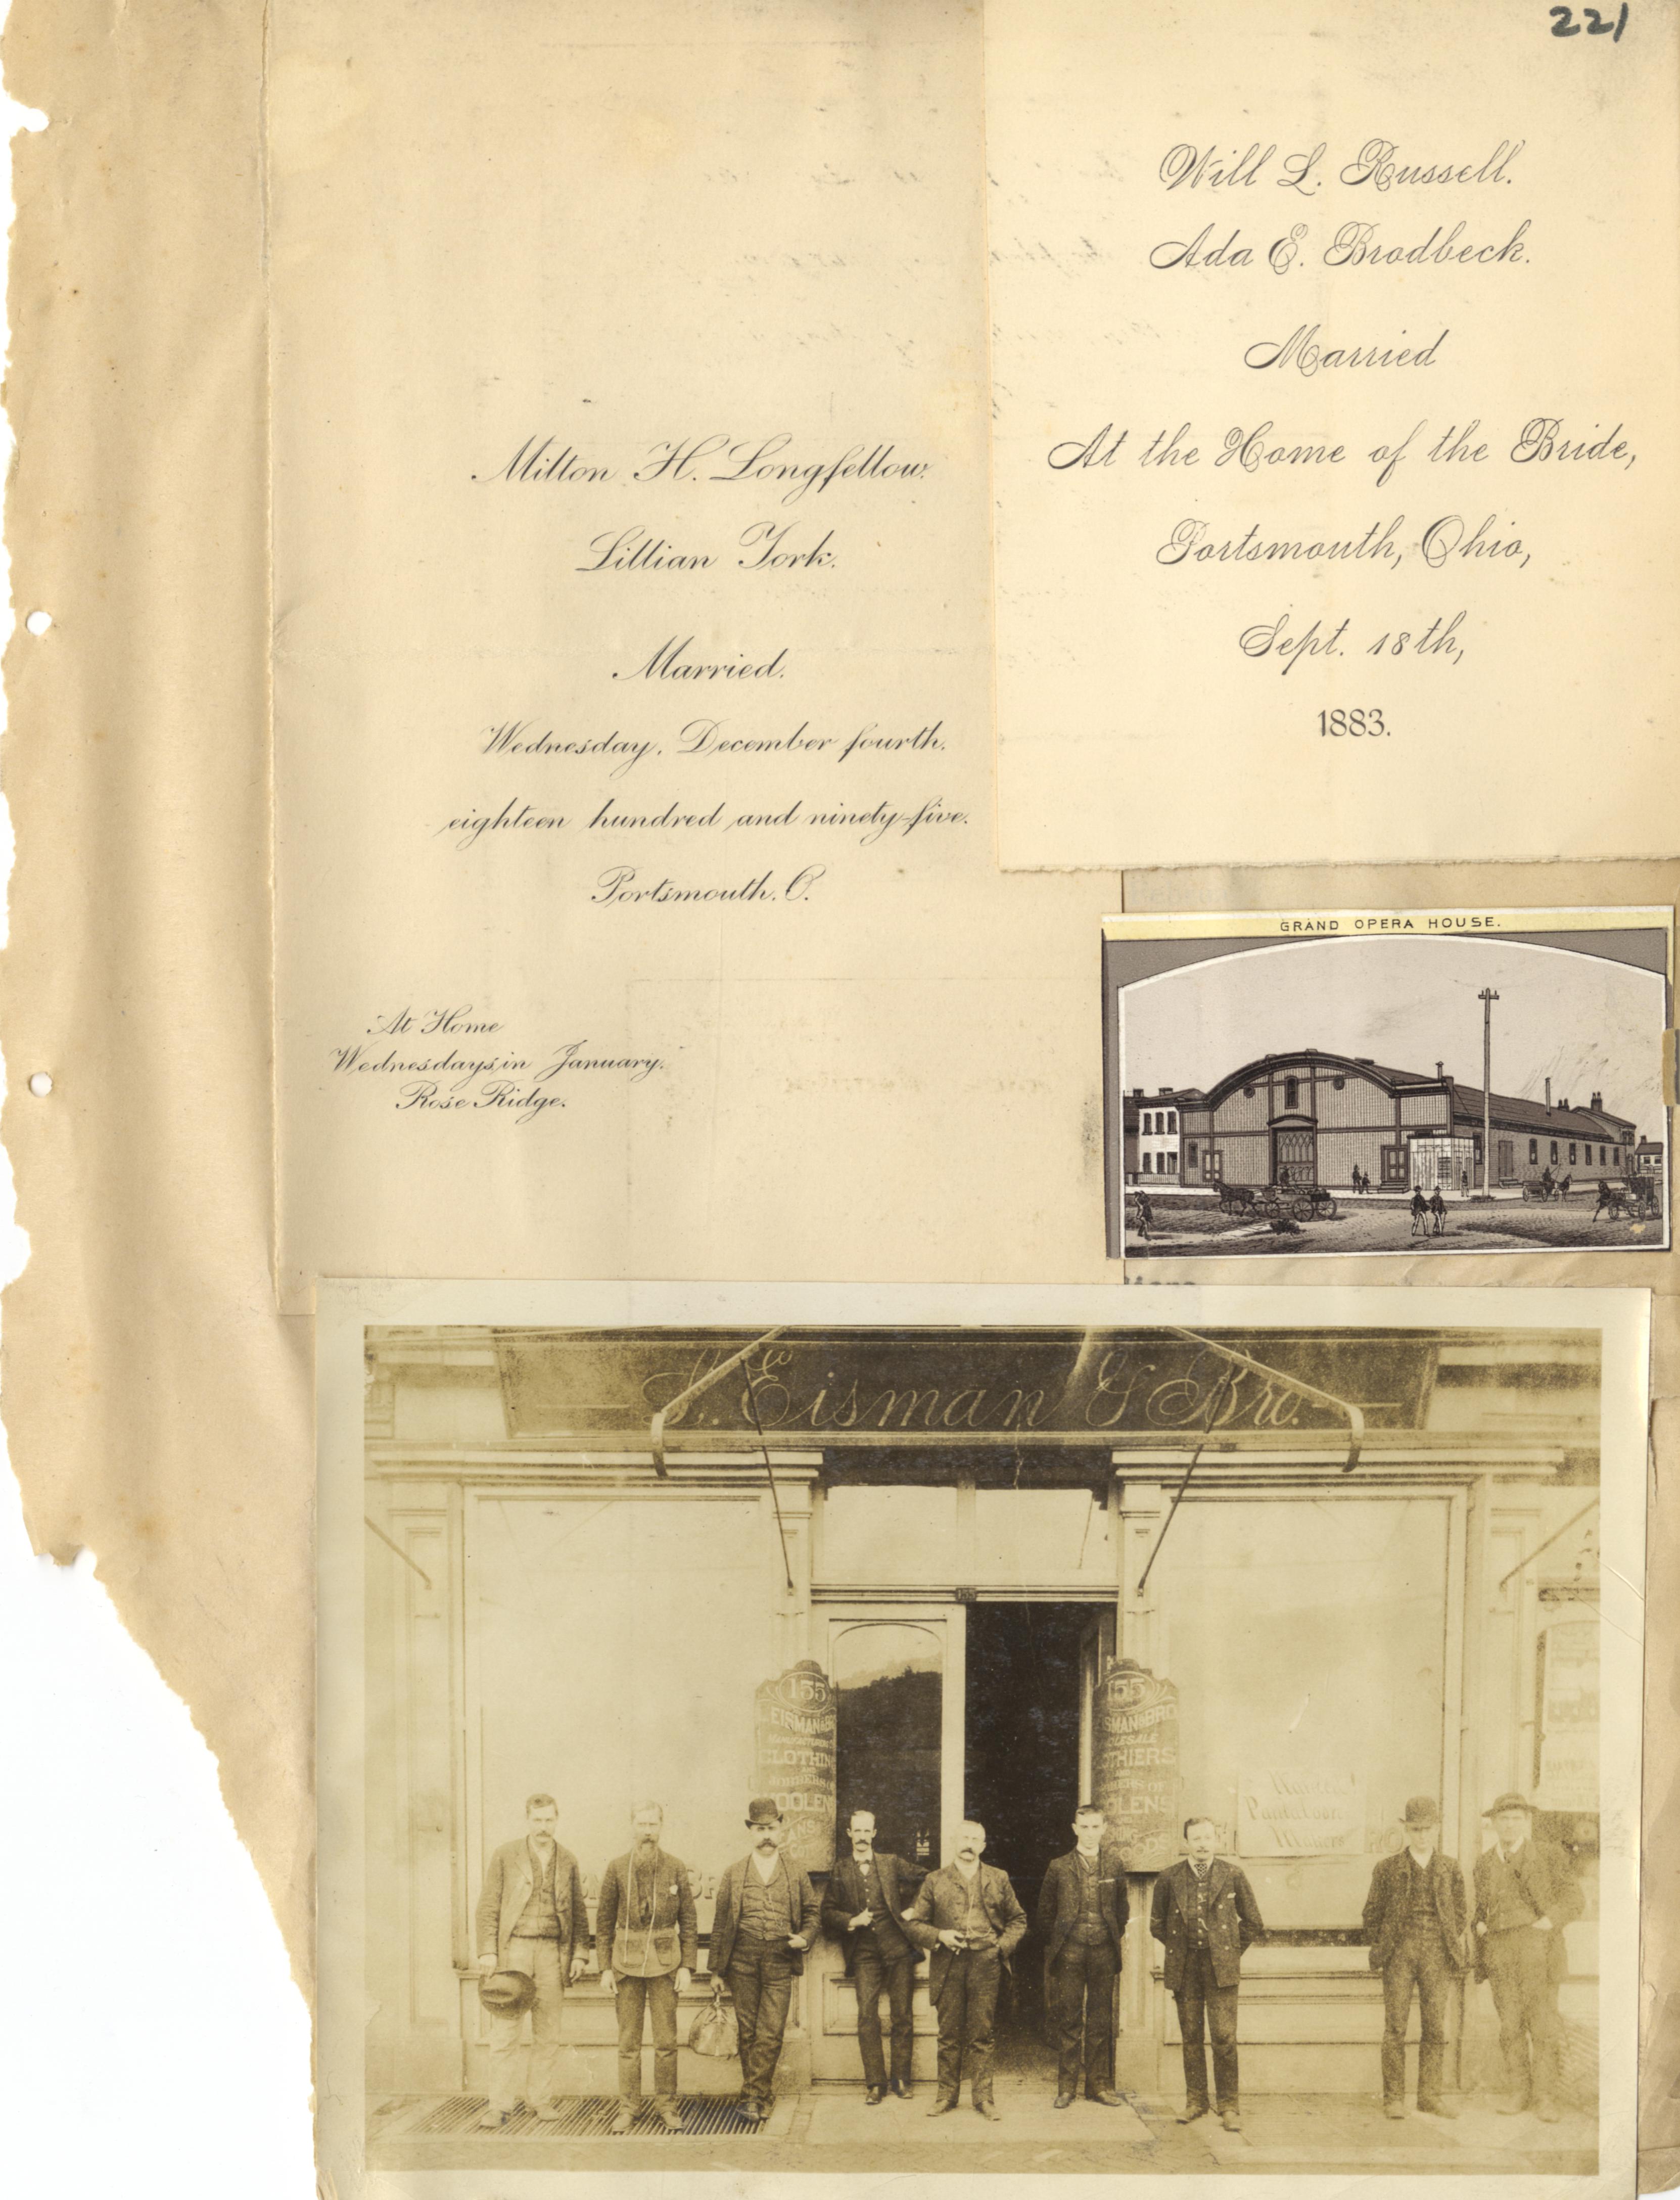 221
Will L. Russell.
Ada E. Brodbeck.
Married
At the Home of the Bride,
Portsmouth, Ohio,
Sept. 18th,
1883.
Milton H. Longfellow.
Lillian York.
Married.
Wednesday, December fourth.
eighteen hundred and ninety-five.
Portsmouth. O.
At Home
Wednesdays in January.
Rose Ridge.
GRAND OPERA HOUSE.
Eisman & Bro.
155
155
EISMAN & BRO
SMAN & BRO
MANUFACTURERS
OLESALE
CLOTHIN
OTHIERS
JOBBERS OF
BERS OF
OOLENS
OLENS
GOODS
Wanted!
Pantaloon
Makers